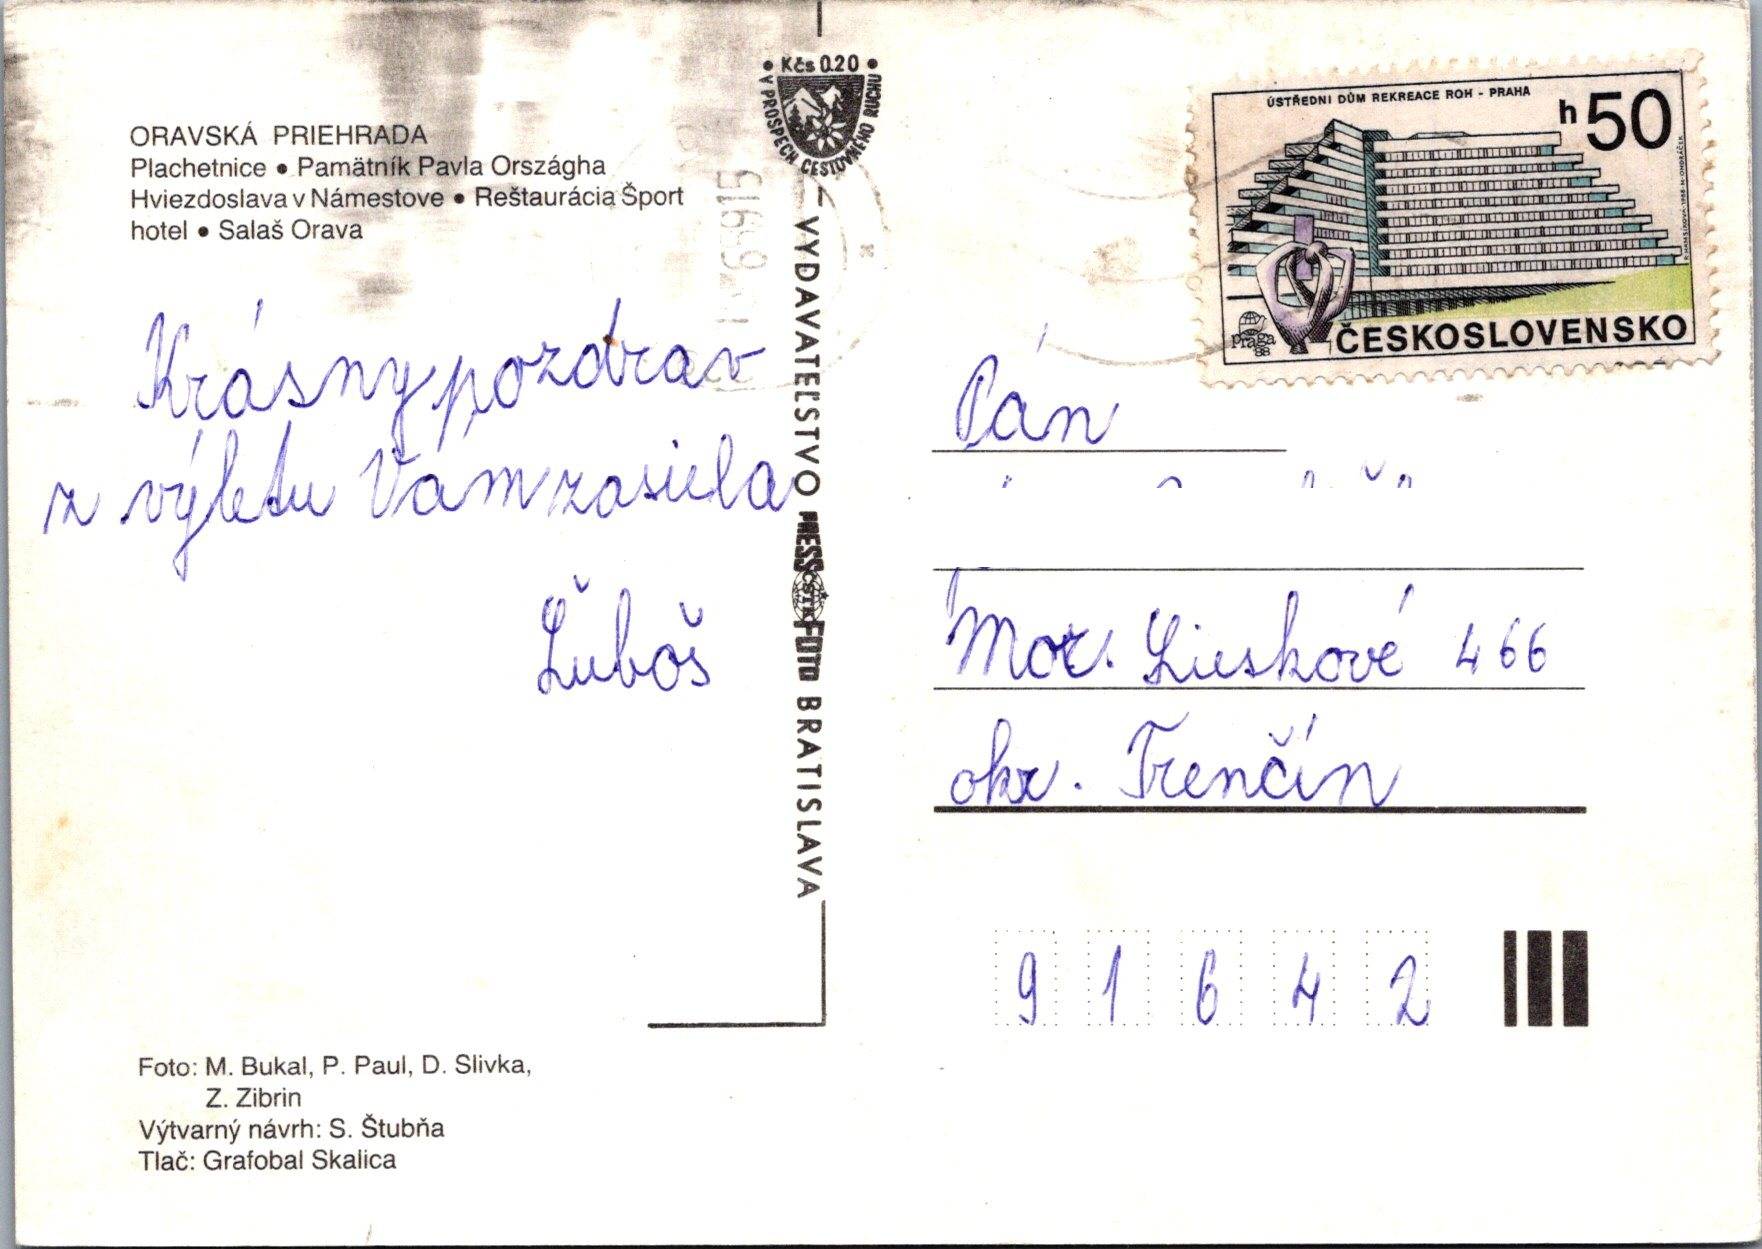 ORAVSKÁ PRIEHRADA
Plachetnice • Pamätník Pavla Országha
Hviezdoslava v Námestove • Reštaurácia Šport
hotel • Salaš Orava
Krásny pozdrav
z výletu Vám zasiela
Ľuboš
Foto: M. Bukal, P. Paul, D. Slivka,
Z. Zibrin
Výtvarný návrh: S. Štubňa
Tlač: Grafobal Skalica
• Kčs 0.20 •
V PROSPECH CESTOVNÉHO RUCHU
VYDAVATEĽSTVO PRESSFOTO BRATISLAVA
ČSTK
ÚSTŘEDNI DŮM REKREACE ROH - PRAHA
h 50
praga
88
ČESKOSLOVENSKO
Pán
Mor. Lieskové 466
okr. Trenčín
91642